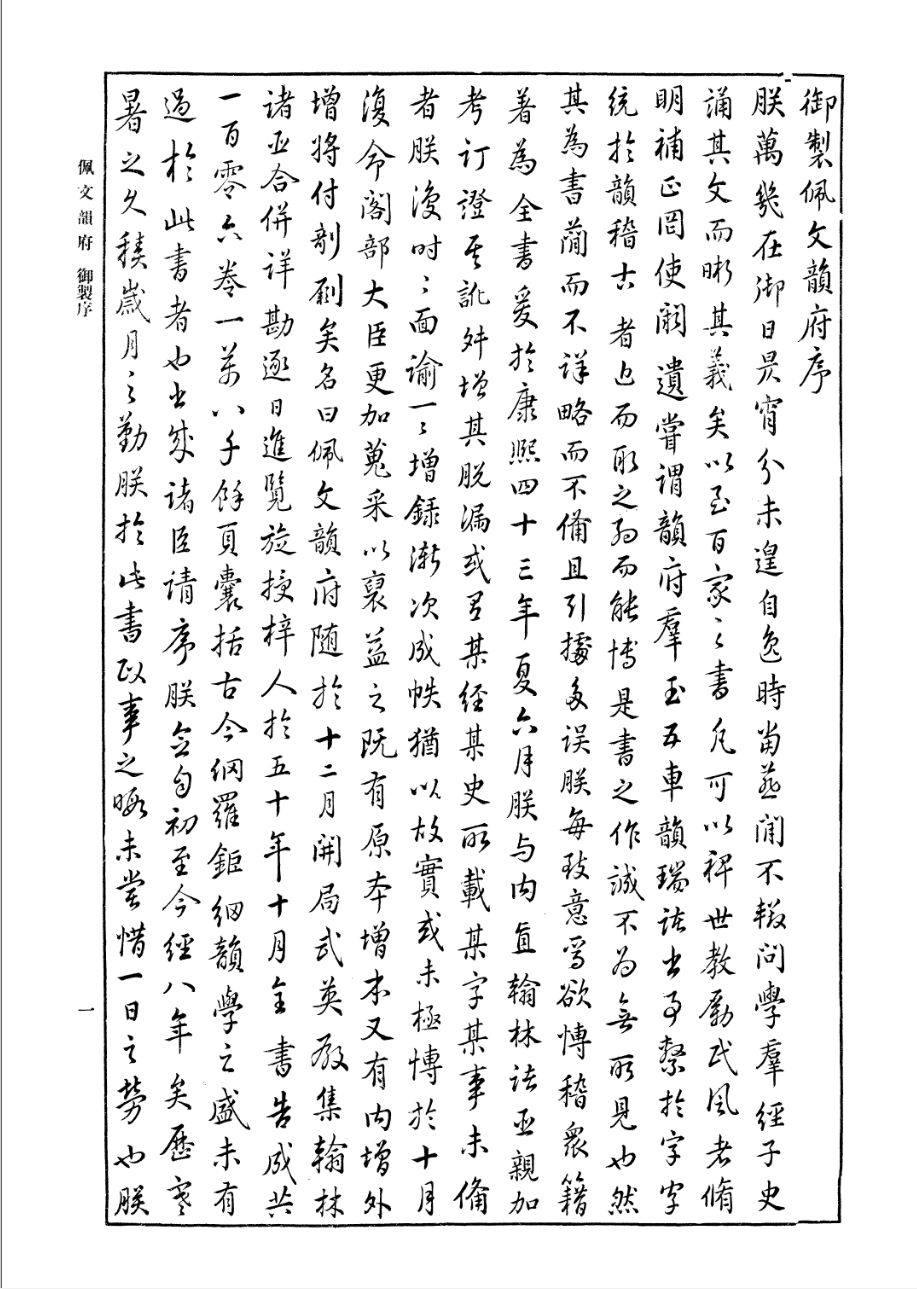 御製佩文韻府序
朕萬幾在御日昃宵分未遑自逸時當燕閒不輟問學羣經子史
誦其文而晰其義矣以至百家之書凡可以裨世教勵民風者脩
明補正罔使闕遺嘗謂韻府羣玉五車韻瑞諸書事繫於字字
統於韻稽古者近而取之約而能博是書之作誠不為無所見也然
其為書簡而不詳略而不備且引據多误朕每致意焉欲博稽衆籍
著為全書爰於康熙四十三年夏六月朕与内直翰林諸臣親加
考訂證其訛舛增其脱漏或有某經某史所載某字某事未備
者朕復時〻面諭一〻增録漸次成帙猶以故實或未極博於十月
復命閣部大臣更加蒐采以裒益之既有原本增本又有内增外
增將付剞劂矣名曰佩文韻府随於十二月開局武英殿集翰林
諸臣合併詳勘逐日進覽旋授梓人於五十年十月全書告成共
一百零六卷一萬八千餘頁囊括古今網羅鉅細韻學之盛未有
過於此書者也書成諸臣請序朕念自初至今經八年矣歷寒
暑之久積歲月之勤朕於此書政事之暇未嘗惜一日之勞也朕
佩文韻府 御製序
一